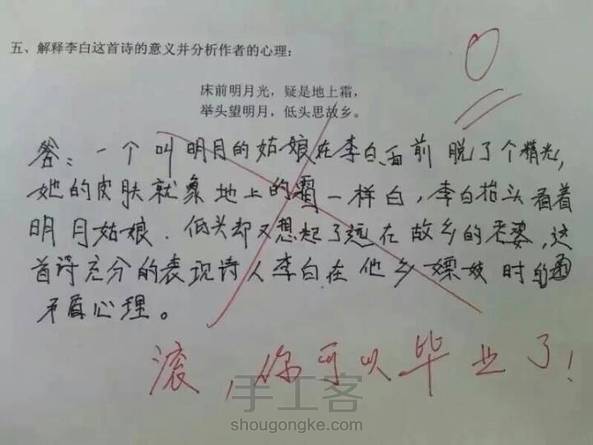 五、解释李白这首诗的意义并分析作者的心理：
0
床前明月光，疑是地上霜，
举头望明月，低头思故乡。
答：一个叫明月的姑娘在李白面前脱了个精光，
她的皮肤就象地上的霜一样白，李白抬头看着
明月姑娘．低头却又想起了远在故乡的老婆，这
首诗充分的表现诗人李白在他乡嫖妓时的
矛盾心理。
滚，你可以毕业了！
手工客
shougongke.com